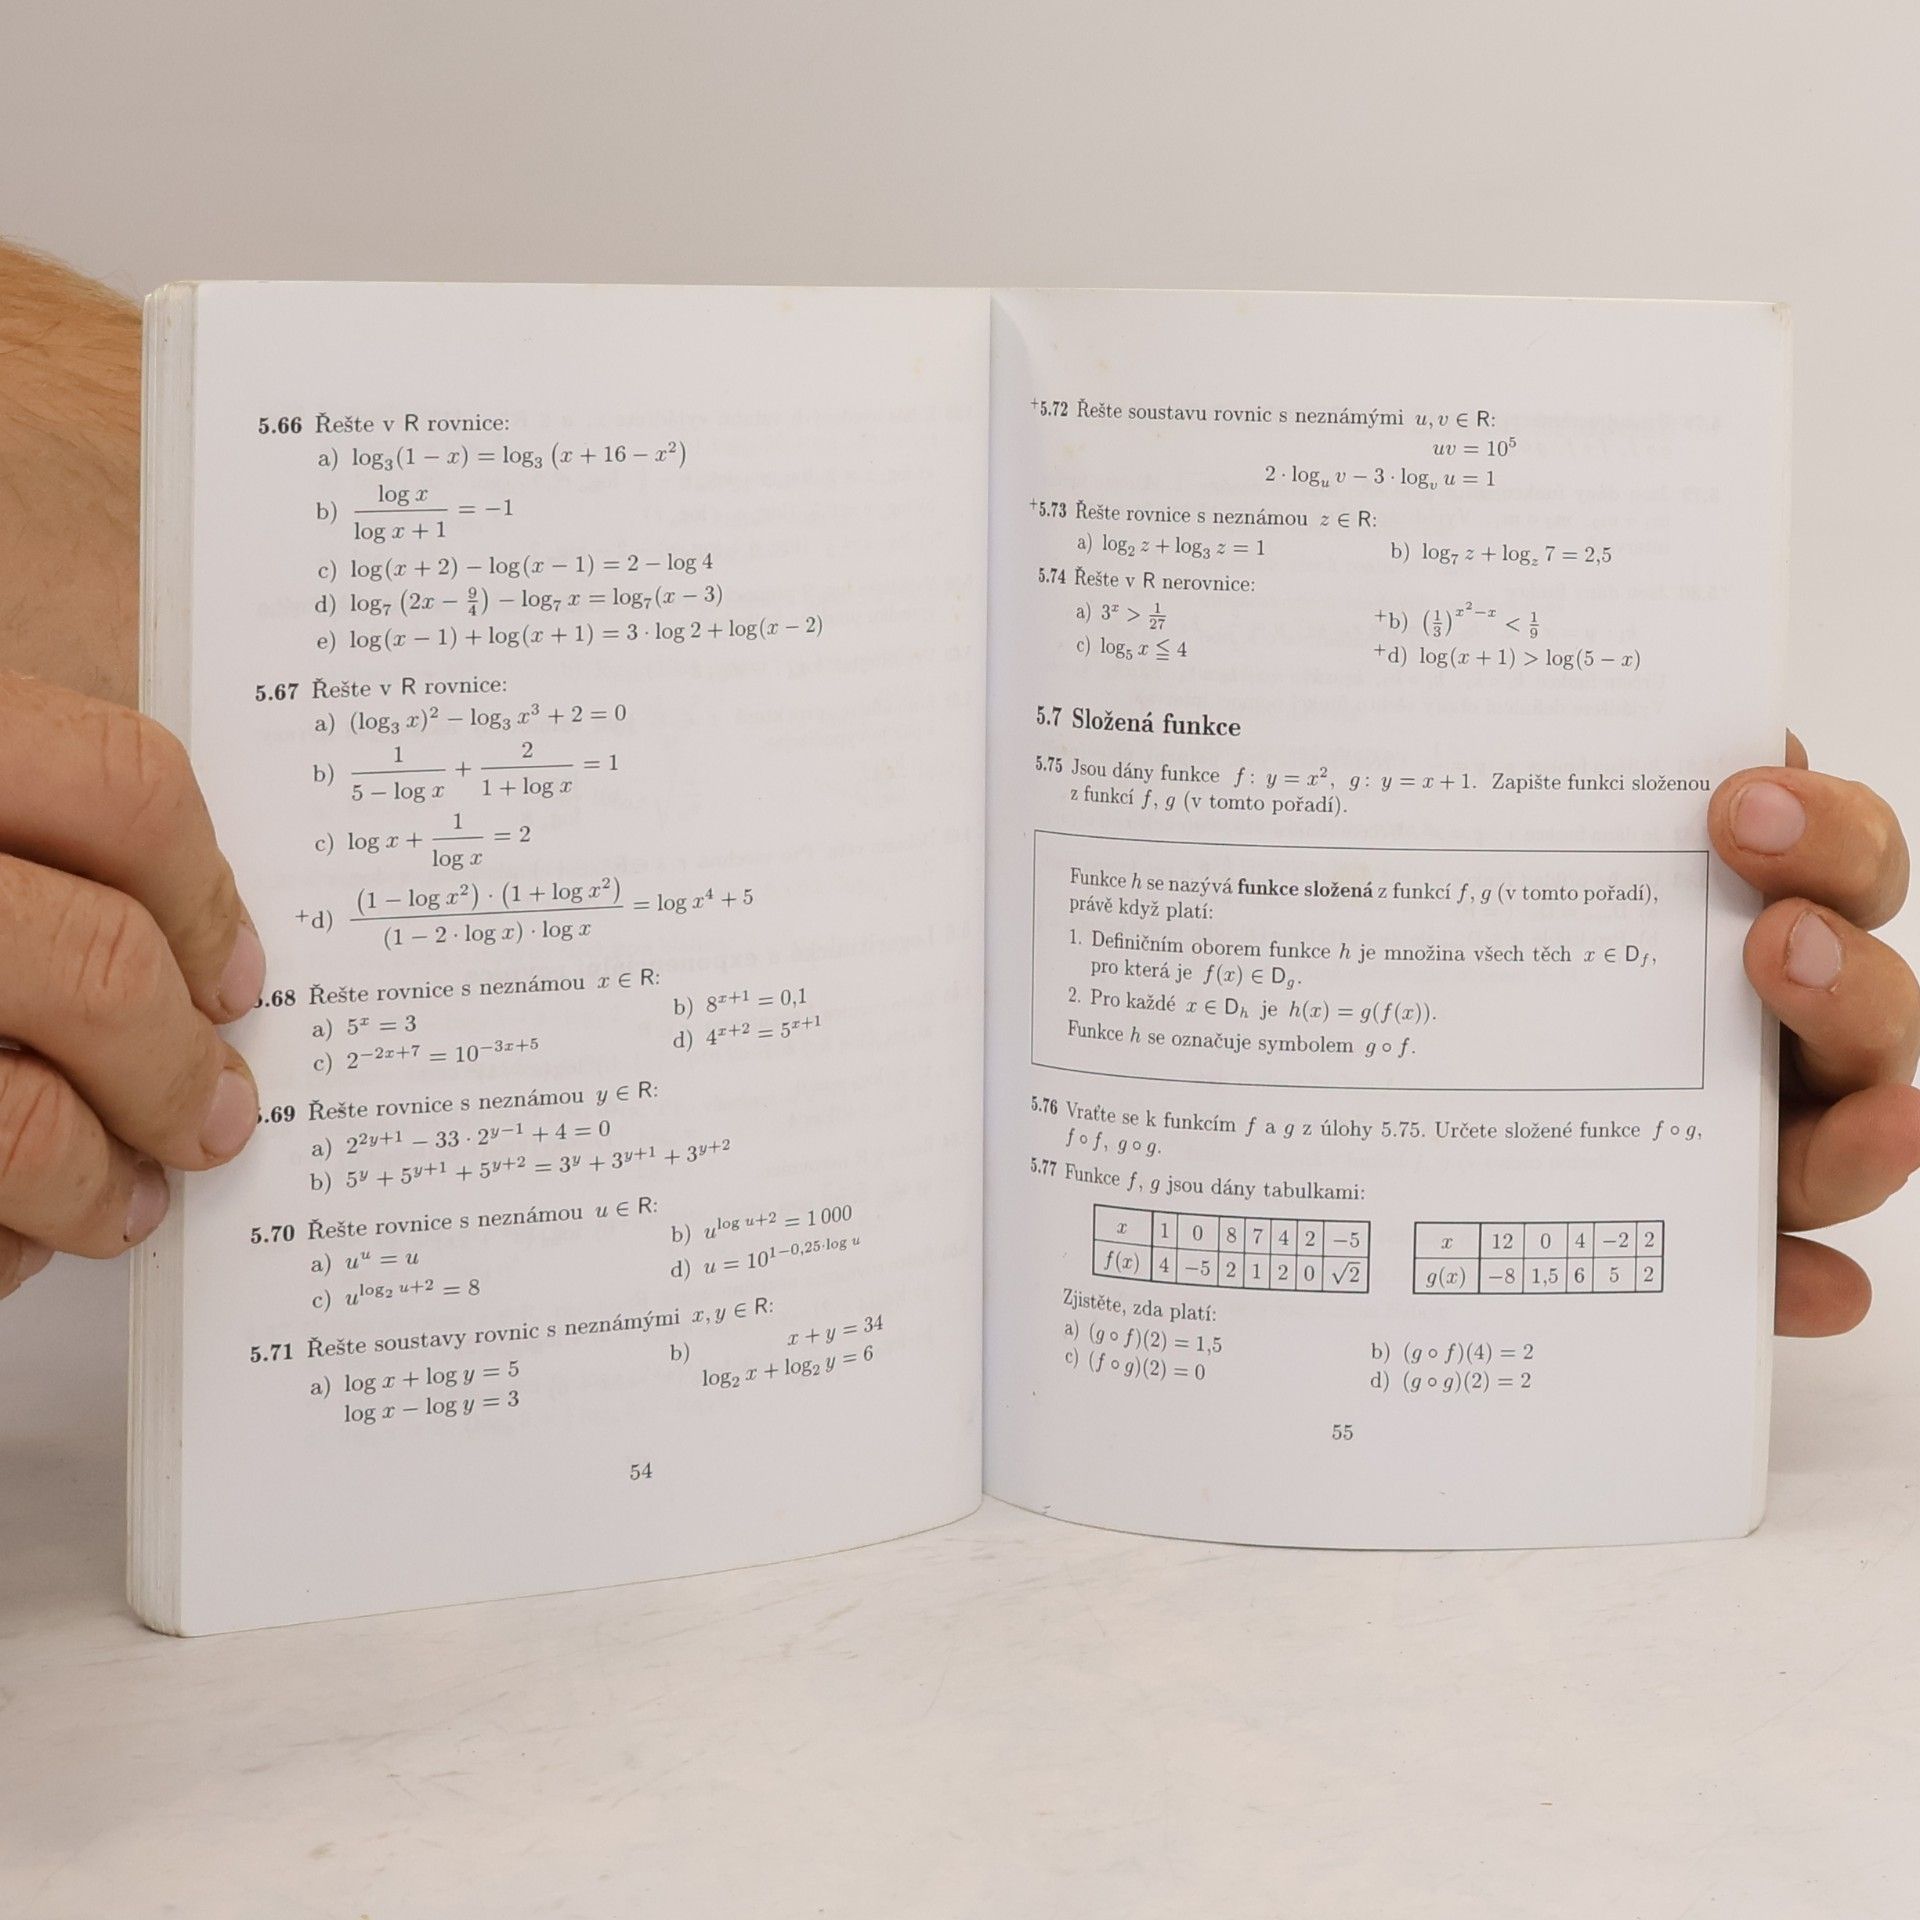 5.66 Řešte v R rovnice:
a) log₃(1 − x) = log₃ (x + 16 − x²)
b) log x / (log x + 1) = −1
c) log(x + 2) − log(x − 1) = 2 − log 4
d) log₇ (2x − 9/4) − log₇ x = log₇(x − 3)
e) log(x − 1) + log(x + 1) = 3 · log 2 + log(x − 2)
5.67 Řešte v R rovnice:
a) (log₃ x)² − log₃ x³ + 2 = 0
b) 1 / (5 − log x) + 2 / (1 + log x) = 1
c) log x + 1 / log x = 2
+d) (1 − log x²) · (1 + log x²) / ((1 − 2 · log x) · log x) = log x⁴ + 5
5.68 Řešte rovnice s neznámou x ∈ R:
a) 5^x = 3 b) 8^(x+1) = 0,1
c) 2^(−2x+7) = 10^(−3x+5) d) 4^(x+2) = 5^(x+1)
5.69 Řešte rovnice s neznámou y ∈ R:
a) 2^(2y+1) − 33 · 2^(y−1) + 4 = 0
b) 5^y + 5^(y+1) + 5^(y+2) = 3^y + 3^(y+1) + 3^(y+2)
5.70 Řešte rovnice s neznámou u ∈ R:
a) u^u = u b) u^(log u+2) = 1 000
c) u^(log₂ u+2) = 8 d) u = 10^(1−0,25·log u)
5.71 Řešte soustavy rovnic s neznámými x, y ∈ R:
a) log x + log y = 5 b) x + y = 34
log x − log y = 3 log₂ x + log₂ y = 6
54
+5.72 Řešte soustavu rovnic s neznámými u, v ∈ R:
uv = 10⁵
2 · log_u v − 3 · log_v u = 1
+5.73 Řešte rovnice s neznámou z ∈ R:
a) log₂ z + log₃ z = 1 b) log₇ z + log_z 7 = 2,5
5.74 Řešte v R nerovnice:
a) 3^x > 1/27 +b) (1/3)^(x²−x) < 1/9
c) log₅ x ≦ 4 +d) log(x + 1) > log(5 − x)
5.7 Složená funkce
5.75 Jsou dány funkce f: y = x², g: y = x + 1. Zapište funkci složenou
z funkcí f, g (v tomto pořadí).
Funkce h se nazývá funkce složená z funkcí f, g (v tomto pořadí),
právě když platí:
1. Definičním oborem funkce h je množina všech těch x ∈ D_f,
pro která je f(x) ∈ D_g.
2. Pro každé x ∈ D_h je h(x) = g(f(x)).
Funkce h se označuje symbolem g ∘ f.
5.76 Vraťte se k funkcím f a g z úlohy 5.75. Určete složené funkce f ∘ g,
f ∘ f, g ∘ g.
5.77 Funkce f, g jsou dány tabulkami:
x 1 0 8 7 4 2 −5
f(x) 4 −5 2 1 2 0 √2
x 12 0 4 −2 2
g(x) −8 1,5 6 5 2
Zjistěte, zda platí:
a) (g ∘ f)(2) = 1,5 b) (g ∘ f)(4) = 2
c) (f ∘ g)(2) = 0 d) (g ∘ g)(2) = 2
55